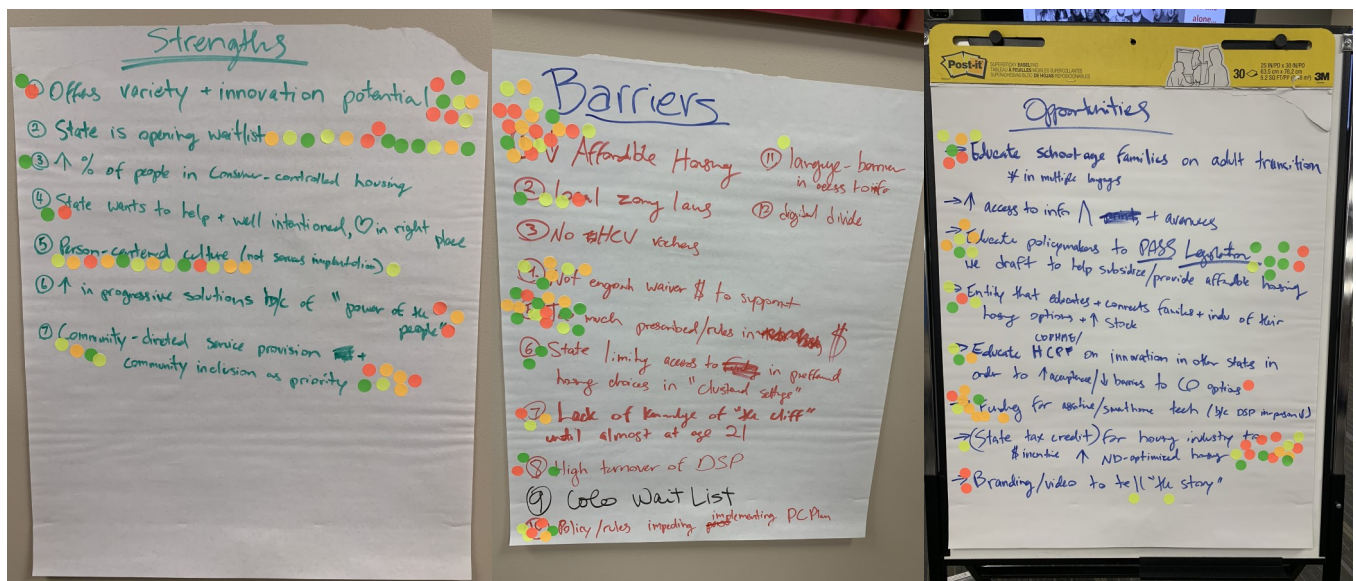 Strengths
① Offers variety + innovation potential
② State is opening waitlist
③ ↑ % of people in consumer-controlled housing
④ State wants to help + well intentioned, ♡ in right place
⑤ Person-centered culture (not services
⑥ ↑ in progressive solutions b/c of "power of the
people"
⑦ Community-directed service provision +
community inclusion as priority
Barriers
↓ Affordible Housing
② Local zoning laws
③ No HCV vochers
4. Not enough waiver $ to support
much prescribed/rules in $
⑥ State limity access to in preffered
hosing choices in "clustered settings"
⑦ Lack of knowledge of "the cliff"
until almost at age 21
⑧ High turnover of DSP
⑨ Colo Wait List
10 Policy/rules impeding implementing PC Plan
⑪ language-barrier
in access to info
⑫ digital divide
alone...
Post-it
SUPERSTICKY EASEL PAD
30
25 IN/PO x 30 IN/PO
63,5 cm x 76,2 cm
3M
Opportunities
→ Educate school age families on adult transition
* in multiple
→ ↑ access to info + awareness
→ Educate policymakers to PASS Legislation
we draft to help subsidize/provide affordable housing
→ Entity that educates + connects families + indiv of their
housing options + ↑ Stock
→ Educate HCPF on innovation in other state in
order to ↑ acceptance/↓ barriers to CO options
→ Funding for assistive/smarthome tech (b/c DSP
→ (State tax credit) for housing industry to
$ incentive ↑ ND-optimized housing
→ Branding/video to tell "the story"